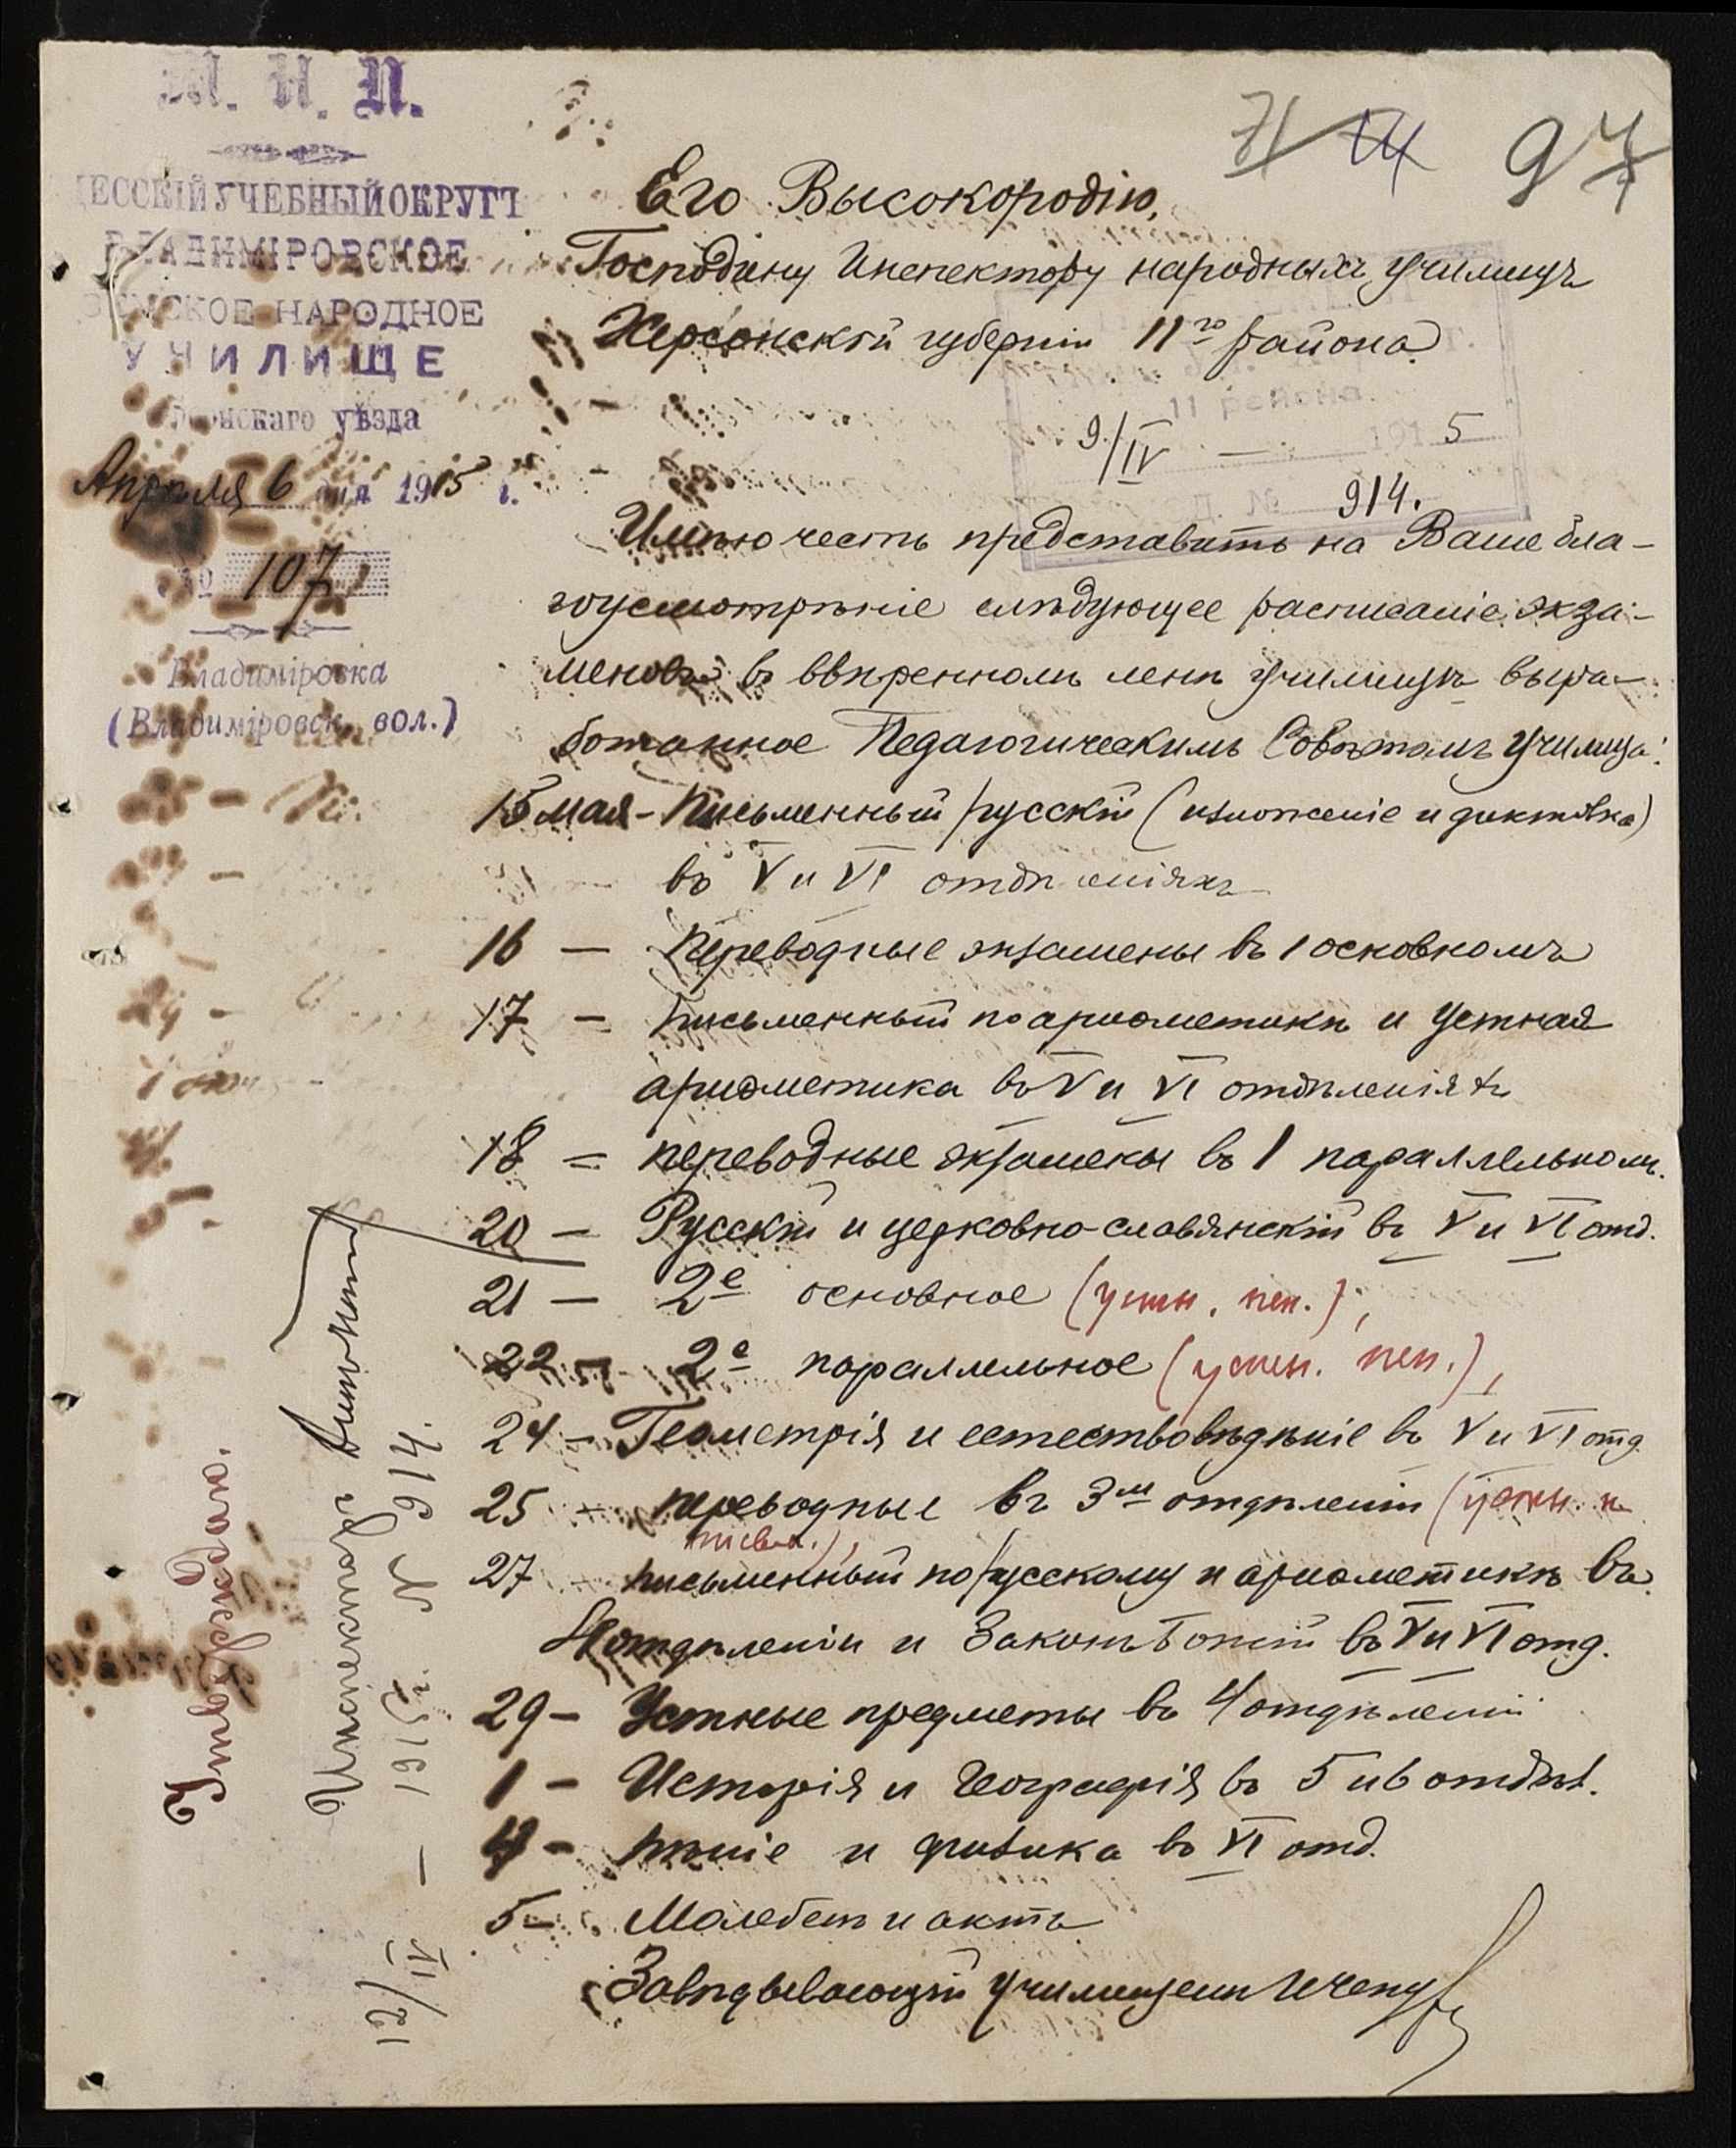 М. Н. П.
ДЕССКІЙ УЧЕБНЫЙ ОКРУГЪ
ВЛАДИМІРОВСКОЕ
ЗЕМСКОЕ НАРОДНОЕ
УЧИЛИЩЕ
уѣзда
Апрѣля 6 дня 1915 г.
№ 107
Владиміровка
(Владиміровск. вол.)
97
Его Высокородію,
Господину Инспектору народныхъ училищъ
Херсонской губерніи 11го района.
11 района
9/IV — 1915
Д. № 914.
Имѣю честь представить на Ваше бла-
гоусмотрѣніе слѣдующее расписаніе экза-
меновъ въ ввѣренномъ мнѣ училищѣ выра-
ботанное Педагогическимъ Совѣтомъ училища:
15 мая - Письменный русскій (изложеніе и диктовка)
въ V и VI отдѣленіяхъ
16 — Переводные экзамены въ 1 основномъ
17 — Письменный по ариѳметикѣ и устная
ариѳметика въ V и VI отдѣленіяхъ
18 = переводные экзамены въ 1 параллельномъ.
20 — Русскій и церковно-славянскій въ V и VI отд.
21 — 2е основное (устн. пис.),
22 — 2е параллельное (устн. пис.),
24 — Геометрія и естествовѣдѣніе въ V и VI отд.
25 — переводные въ 3м отдѣленіи (устн. и
письм.),
27 — письменный по русскому и ариѳметикѣ въ
4 отдѣленіи и Законъ Божій въ V и VI отд.
29 — Устные предметы въ 4 отдѣленіи
1 — Исторія и географія въ 5 и 6 отдѣл.
4 — пѣніе и физика въ VI отд.
5 — Молебенъ и актъ
Завѣдывающій училищемъ
Утверждаю.
Инспекторъ
12/IV — 1915 г. N 914.